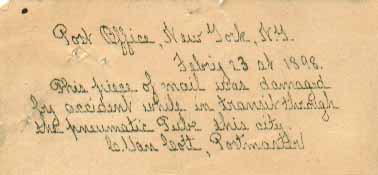 Post Office, New York, N.Y.
Febry 23 at 1898.
This piece of mail was damaged
by accident while in transit through
the pneumatic Tube this city.
C Van Cott, Postmaster